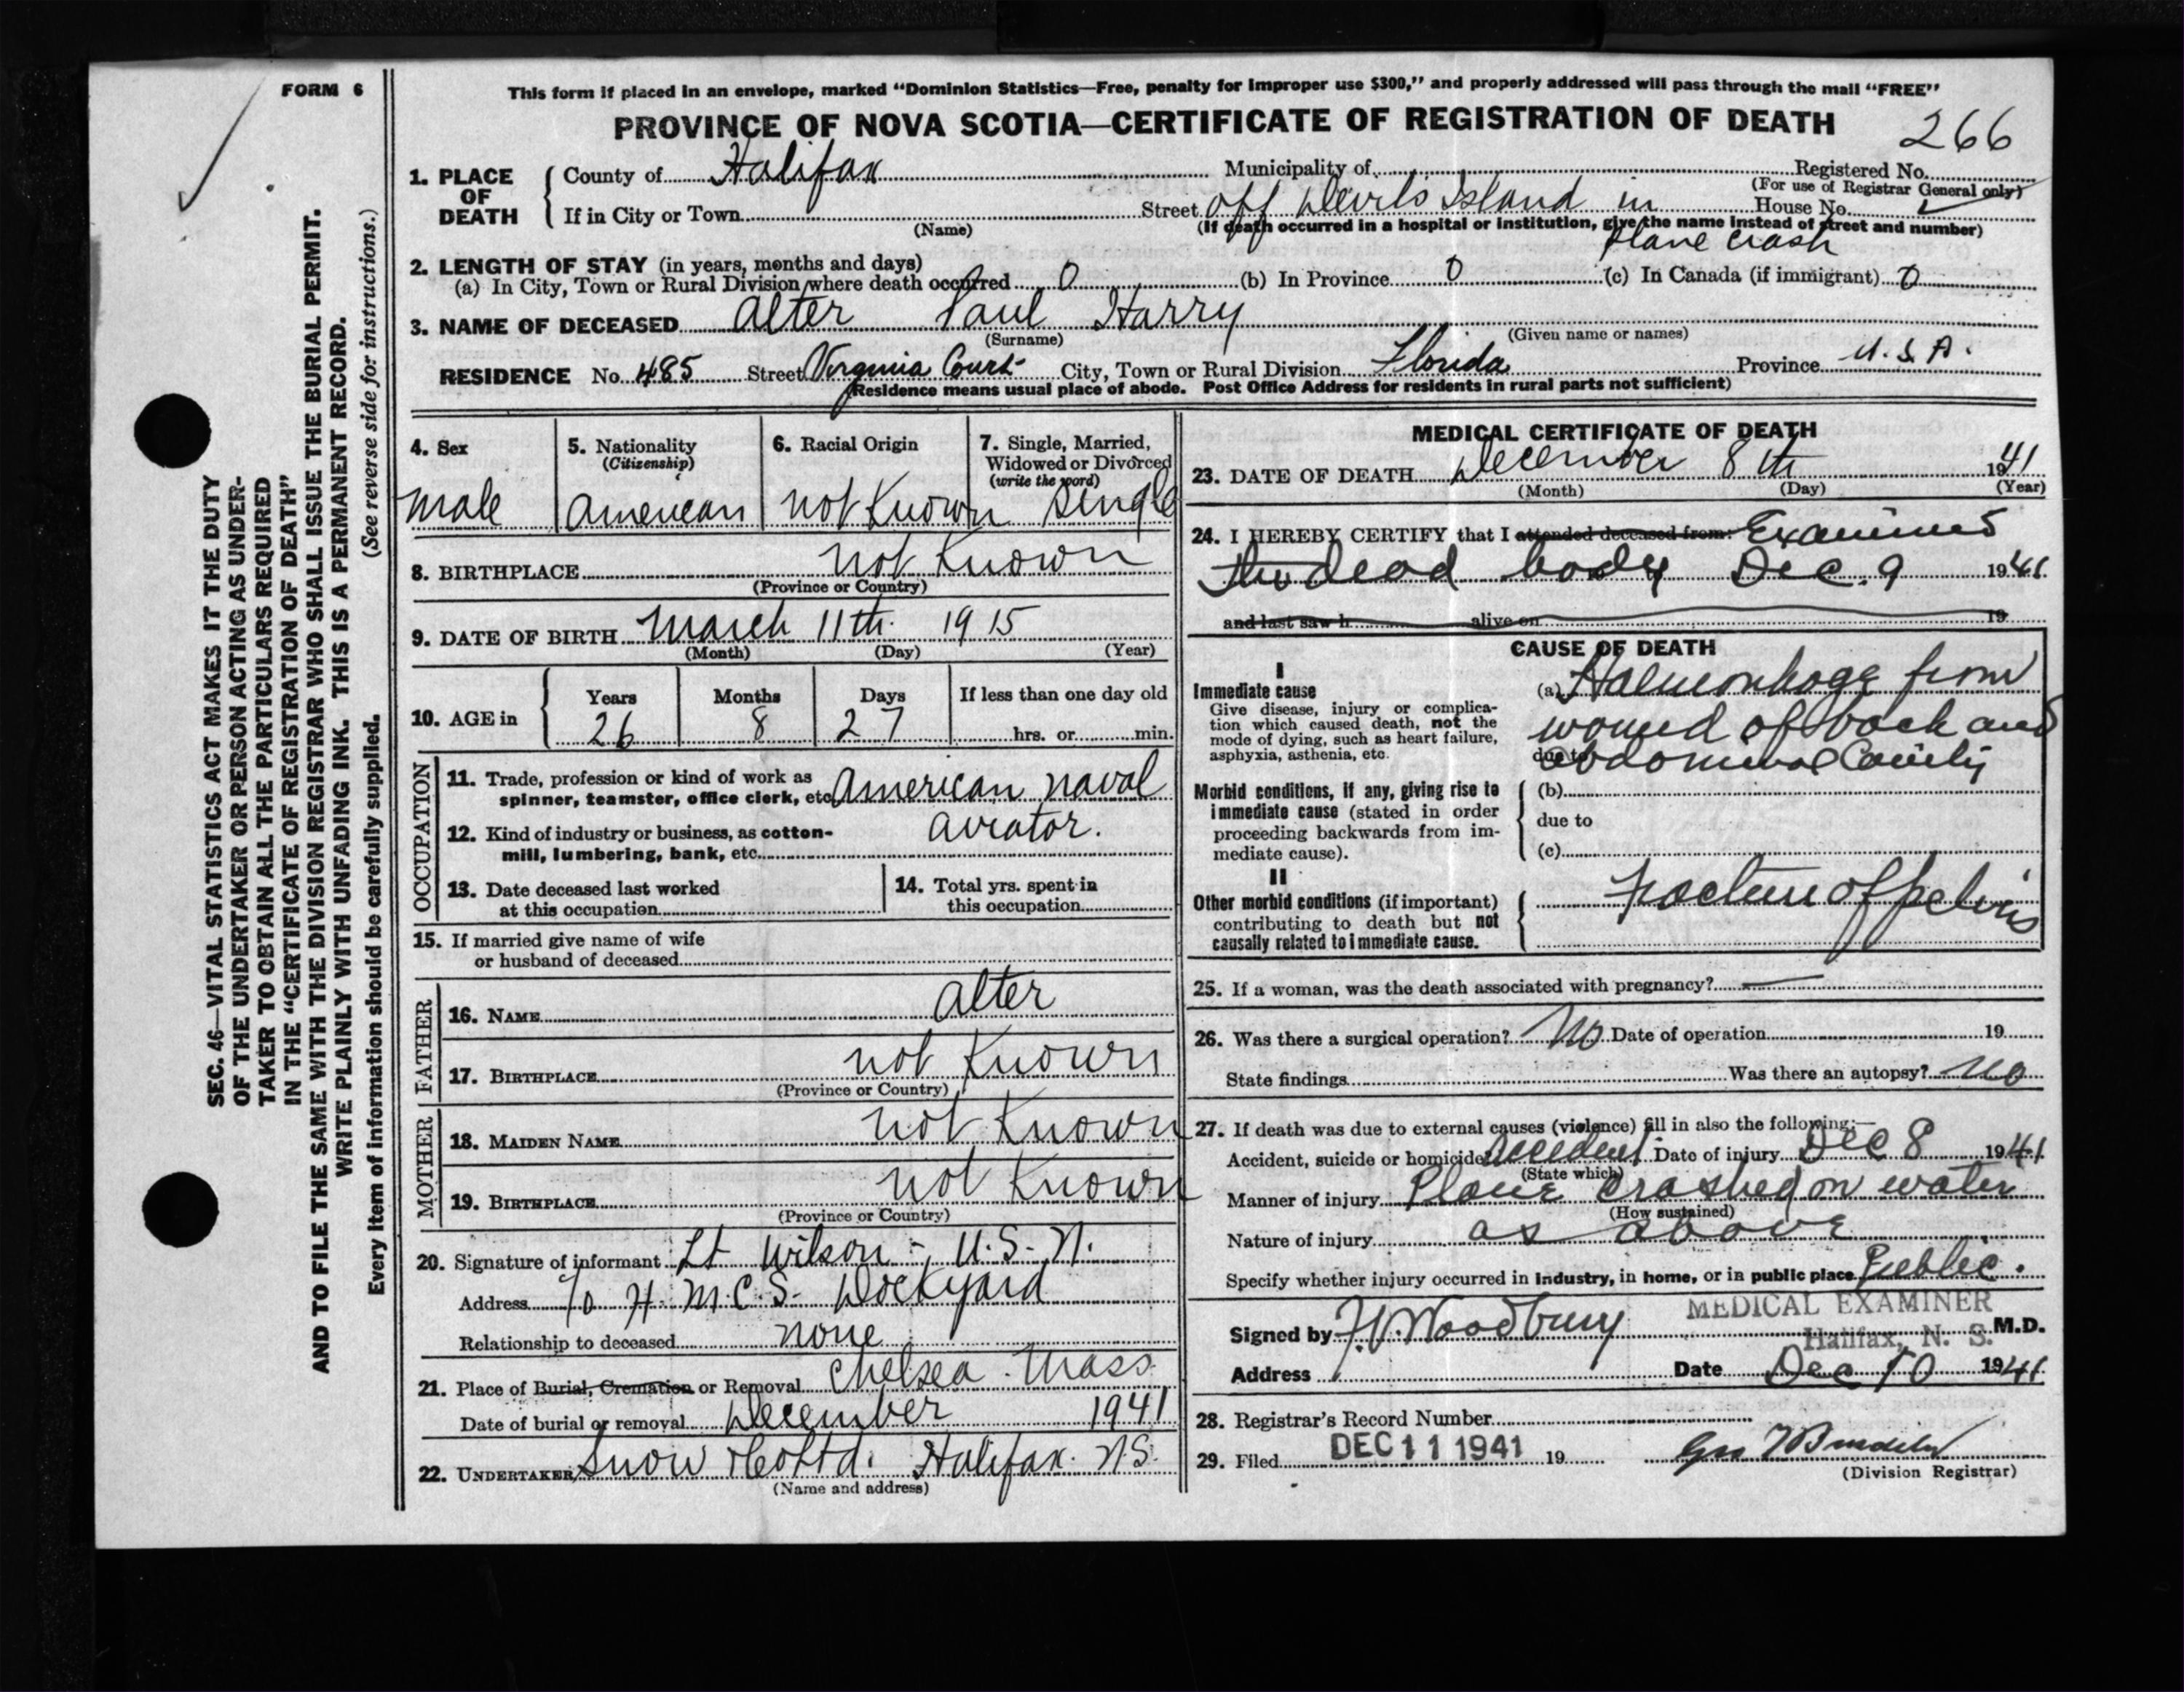 FORM 6
This form if placed in an envelope, marked “Dominion Statistics—Free, penalty for improper use $300,” and properly addressed will pass through the mail “FREE”
PROVINCE OF NOVA SCOTIA—CERTIFICATE OF REGISTRATION OF DEATH
266
1. PLACE OF DEATH
County of Halifax Municipality of Registered No.
(For use of Registrar General only)
If in City or Town Street off Devils Island in House No.
(Name) (If death occurred in a hospital or institution, give the name instead of street and number)
plane crash
2. LENGTH OF STAY (in years, months and days)
(a) In City, Town or Rural Division where death occurred 0 (b) In Province 0 (c) In Canada (if immigrant) 0
3. NAME OF DECEASED Alter Paul Harry
(Surname) (Given name or names)
RESIDENCE No. 485 Street Virginia Court City, Town or Rural Division Florida Province U.S.A.
(Residence means usual place of abode. Post Office Address for residents in rural parts not sufficient)
4. Sex
male
5. Nationality
(Citizenship)
American
6. Racial Origin
not Known
7. Single, Married,
Widowed or Divorced
(write the word)
single
8. BIRTHPLACE not Known
(Province or Country)
9. DATE OF BIRTH March 11th 1915
(Month) (Day) (Year)
10. AGE in
Years Months Days If less than one day old
26 8 27 hrs. or min.
OCCUPATION
11. Trade, profession or kind of work as
spinner, teamster, office clerk, etc. American naval
12. Kind of industry or business, as cotton-
aviator.
mill, lumbering, bank, etc.
13. Date deceased last worked
at this occupation
14. Total yrs. spent in
this occupation
15. If married give name of wife
or husband of deceased
FATHER
16. NAME Alter
17. BIRTHPLACE not Known
(Province or Country)
MOTHER
18. MAIDEN NAME not Known
19. BIRTHPLACE not Known
(Province or Country)
20. Signature of informant Lt Wilson - U.S.N.
Address c/o H.M.C.S. Dockyard
Relationship to deceased none
21. Place of Burial, Cremation or Removal Chelsea. Mass
Date of burial or removal December 1941
22. UNDERTAKER Snow & Co Ltd. Halifax. N.S.
(Name and address)
MEDICAL CERTIFICATE OF DEATH
23. DATE OF DEATH December 8th 1941
(Month) (Day) (Year)
24. I HEREBY CERTIFY that I attended deceased from: Examined
the dead body Dec. 9 1941
and last saw h alive on 19
CAUSE OF DEATH
I
Immediate cause
Give disease, injury or complica-
tion which caused death, not the
mode of dying, such as heart failure,
asphyxia, asthenia, etc.
(a) Haemorrhage from
wound of back and
due to abdominal Cavity
Morbid conditions, if any, giving rise to
immediate cause (stated in order
proceeding backwards from im-
mediate cause).
(b)
due to
(c)
II
Other morbid conditions (if important)
contributing to death but not
causally related to immediate cause.
Fracture of pelvis
25. If a woman, was the death associated with pregnancy? —
26. Was there a surgical operation? No Date of operation 19
State findings Was there an autopsy? No
27. If death was due to external causes (violence) fill in also the following:—
Accident, suicide or homicide Accident Date of injury Dec 8 1941
(State which)
Manner of injury Plane crashed on water
(How sustained)
Nature of injury as above
Specify whether injury occurred in industry, in home, or in public place Public.
MEDICAL EXAMINER
Signed by Woodbury M.D.
Halifax, N. S.
Address Date Dec 10 1941
28. Registrar's Record Number
29. Filed DEC 11 1941 19
(Division Registrar)
SEC. 46—VITAL STATISTICS ACT MAKES IT THE DUTY
OF THE UNDERTAKER OR PERSON ACTING AS UNDER-
TAKER TO OBTAIN ALL THE PARTICULARS REQUIRED
IN THE “CERTIFICATE OF REGISTRATION OF DEATH”
AND TO FILE THE SAME WITH THE DIVISION REGISTRAR WHO SHALL ISSUE THE BURIAL PERMIT.
WRITE PLAINLY WITH UNFADING INK. THIS IS A PERMANENT RECORD.
(See reverse side for instructions.)
Every item of information should be carefully supplied.